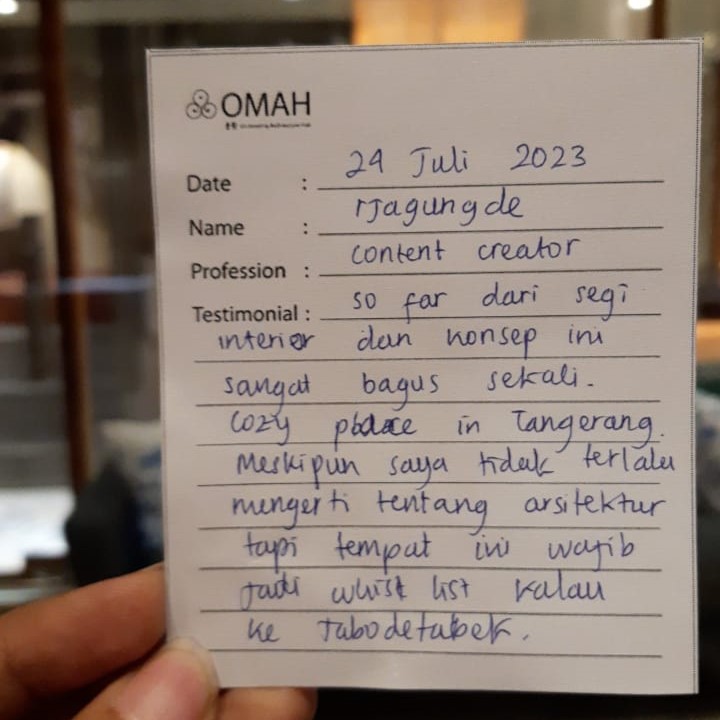 OMAH
Date : 24 Juli 2023
Name : rjagungde
Profession : content creator
Testimonial : so far dari segi
interior dan konsep ini
sangat bagus sekali.
Cozy place in Tangerang.
Meskipun saya tidak terlalu
mengerti tentang arsitektur
tapi tempat ini wajib
jadi whist list kalau
ke Jabodetabek.